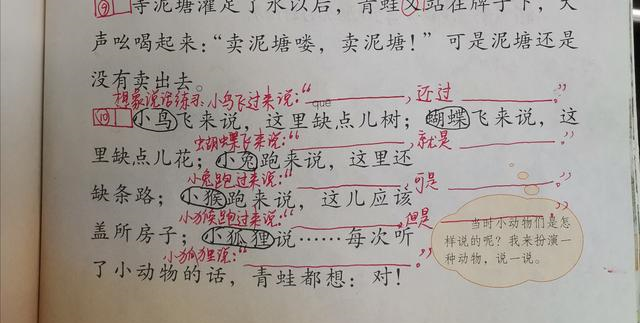 ⑨ 等泥塘灌足了水以后，青蛙又站在牌子下，大
声吆喝起来：“卖泥塘喽，卖泥塘！”可是泥塘还是
没有卖出去。
想象说话练习：小鸟飞过来说：“ ，还过 。”
quē
⑩ 小鸟飞来说，这里缺点儿树；蝴蝶飞来说，这
蝴蝶飞过来说：“ 就是 。”
里缺点儿花；小兔跑来说，这里还
小兔跑过来说：“ 可是 。”
缺条路；小猴跑来说，这儿应该
小猴跑过来说：“ ，但是 。”
盖所房子；小狐狸说……每次听
小狐狸说：“ 。”
了小动物的话，青蛙都想：对！
当时小动物们是怎
样说的呢？我来扮演一
种动物，说一说。